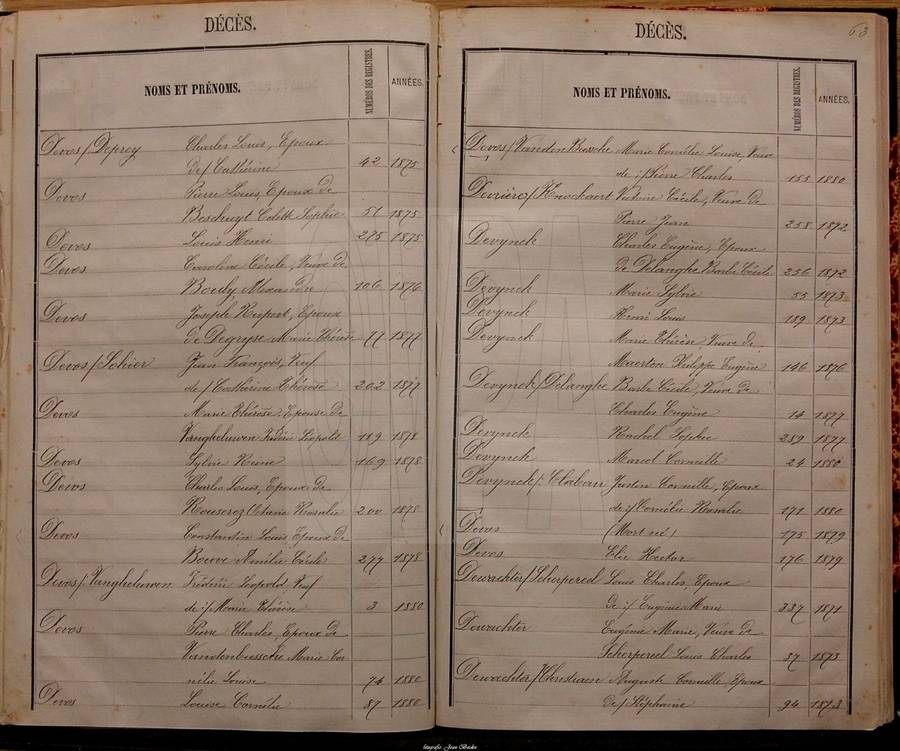 DÉCÈS.
NOMS ET PRÉNOMS. NUMÉROS DES REGISTRES. ANNÉES.
Devos / Deprey Charles Louis, Epoux
De / Cathérine 42 1875
Devos Pierre Louis, Epoux de
Beschuyt Colette Sophie 51 1875
Devos Louis Henri 275 1875
Devos Caroline Cécile, Veuve de
Bouly Alexandre 106 1876
Devos Joseph Rupert, Epoux
de Degryse Marie Thérèse 77 1877
Devos / Sohier Jean François, Veuf
de / Cathérine Thérèse 202 1877
Devos Marie Thérèse, Epouse de
Vangheluwen Frédéric Léopold 119 1878
Devos Sylvie Reine 169 1878
Devos Charles Louis, Epoux de
Rosalie 200 1878
Devos Constantin Louis, Epoux de
Bouve Amélie Cécile 277 1878
Devos / Vangheluwen Frédéric Léopold Veuf
de / Marie Thérèse 3 1880
Devos Pierre Charles, Epoux de
Vandenbussche Marie Cor
nélie Louise 74 1880
Devos Louise Cornélie 87 1880
63
DÉCÈS.
NOMS ET PRÉNOMS. NUMÉROS DES REGISTRES. ANNÉES.
Devos / Vanden Bussche Marie Cornélie Louise, Veuve
de / Pierre Charles 155 1880
Victoire Cécile, Veuve de
Pierre Jean 258 1872
Devynck Charles Eugène, Epoux
de Delanghe Barbe Cécile 256 1872
Devynck Marie Sylvie 55 1873
Devynck Henri Louis 189 1873
Devynck Marie Thérèse Veuve de
Maerten Philippe Eugène 146 1876
Devynck / Delanghe Barbe Cécile, Veuve de
Charles Eugène 14 1877
Devynck Rachel Sophie 289 1877
Devynck Marcel Corneille 24 1880
Devynck / Claban Justin Corneille, Epoux
de / Cornélie Rosalie 171 1880
Devos (Mort né) 175 1879
Devos Elie Hector 176 1879
Dewachter / Scherpereel Louis Charles, Epoux
De / Eugénie Marie 337 1871
Dewachter Eugénie Marie, Veuve de
Scherpereel Louis Charles 37 1873
Dewachter / Christiaen Auguste Corneille, Epoux
De / Stéphanie 94 1873
fotografie Jean Boeckx